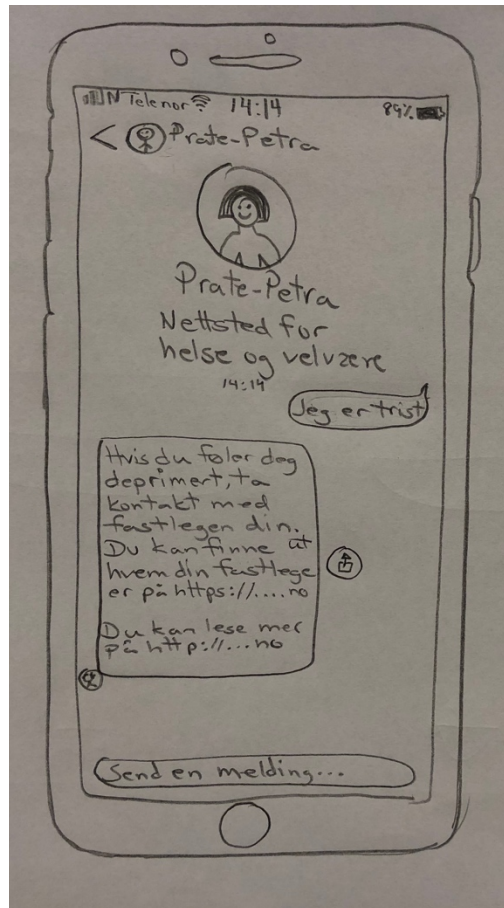 N Telenor 14:14 89%
< Prate-Petra
Prate-Petra
Nettsted for
helse og velvære
14:14
Jeg er trist
Hvis du føler deg
deprimert, ta
kontakt med
fastlegen din.
Du kan finne ut
hvem din fastlege
er på https://....no
Du kan lese mer
på http://...no
Send en melding...